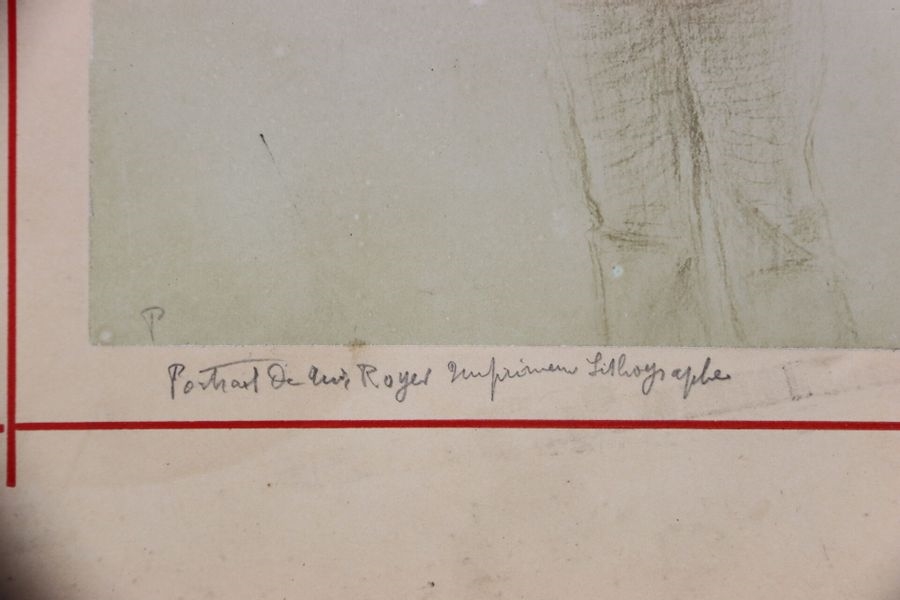 P
Portrait De Royer Imprimeur Lithographe